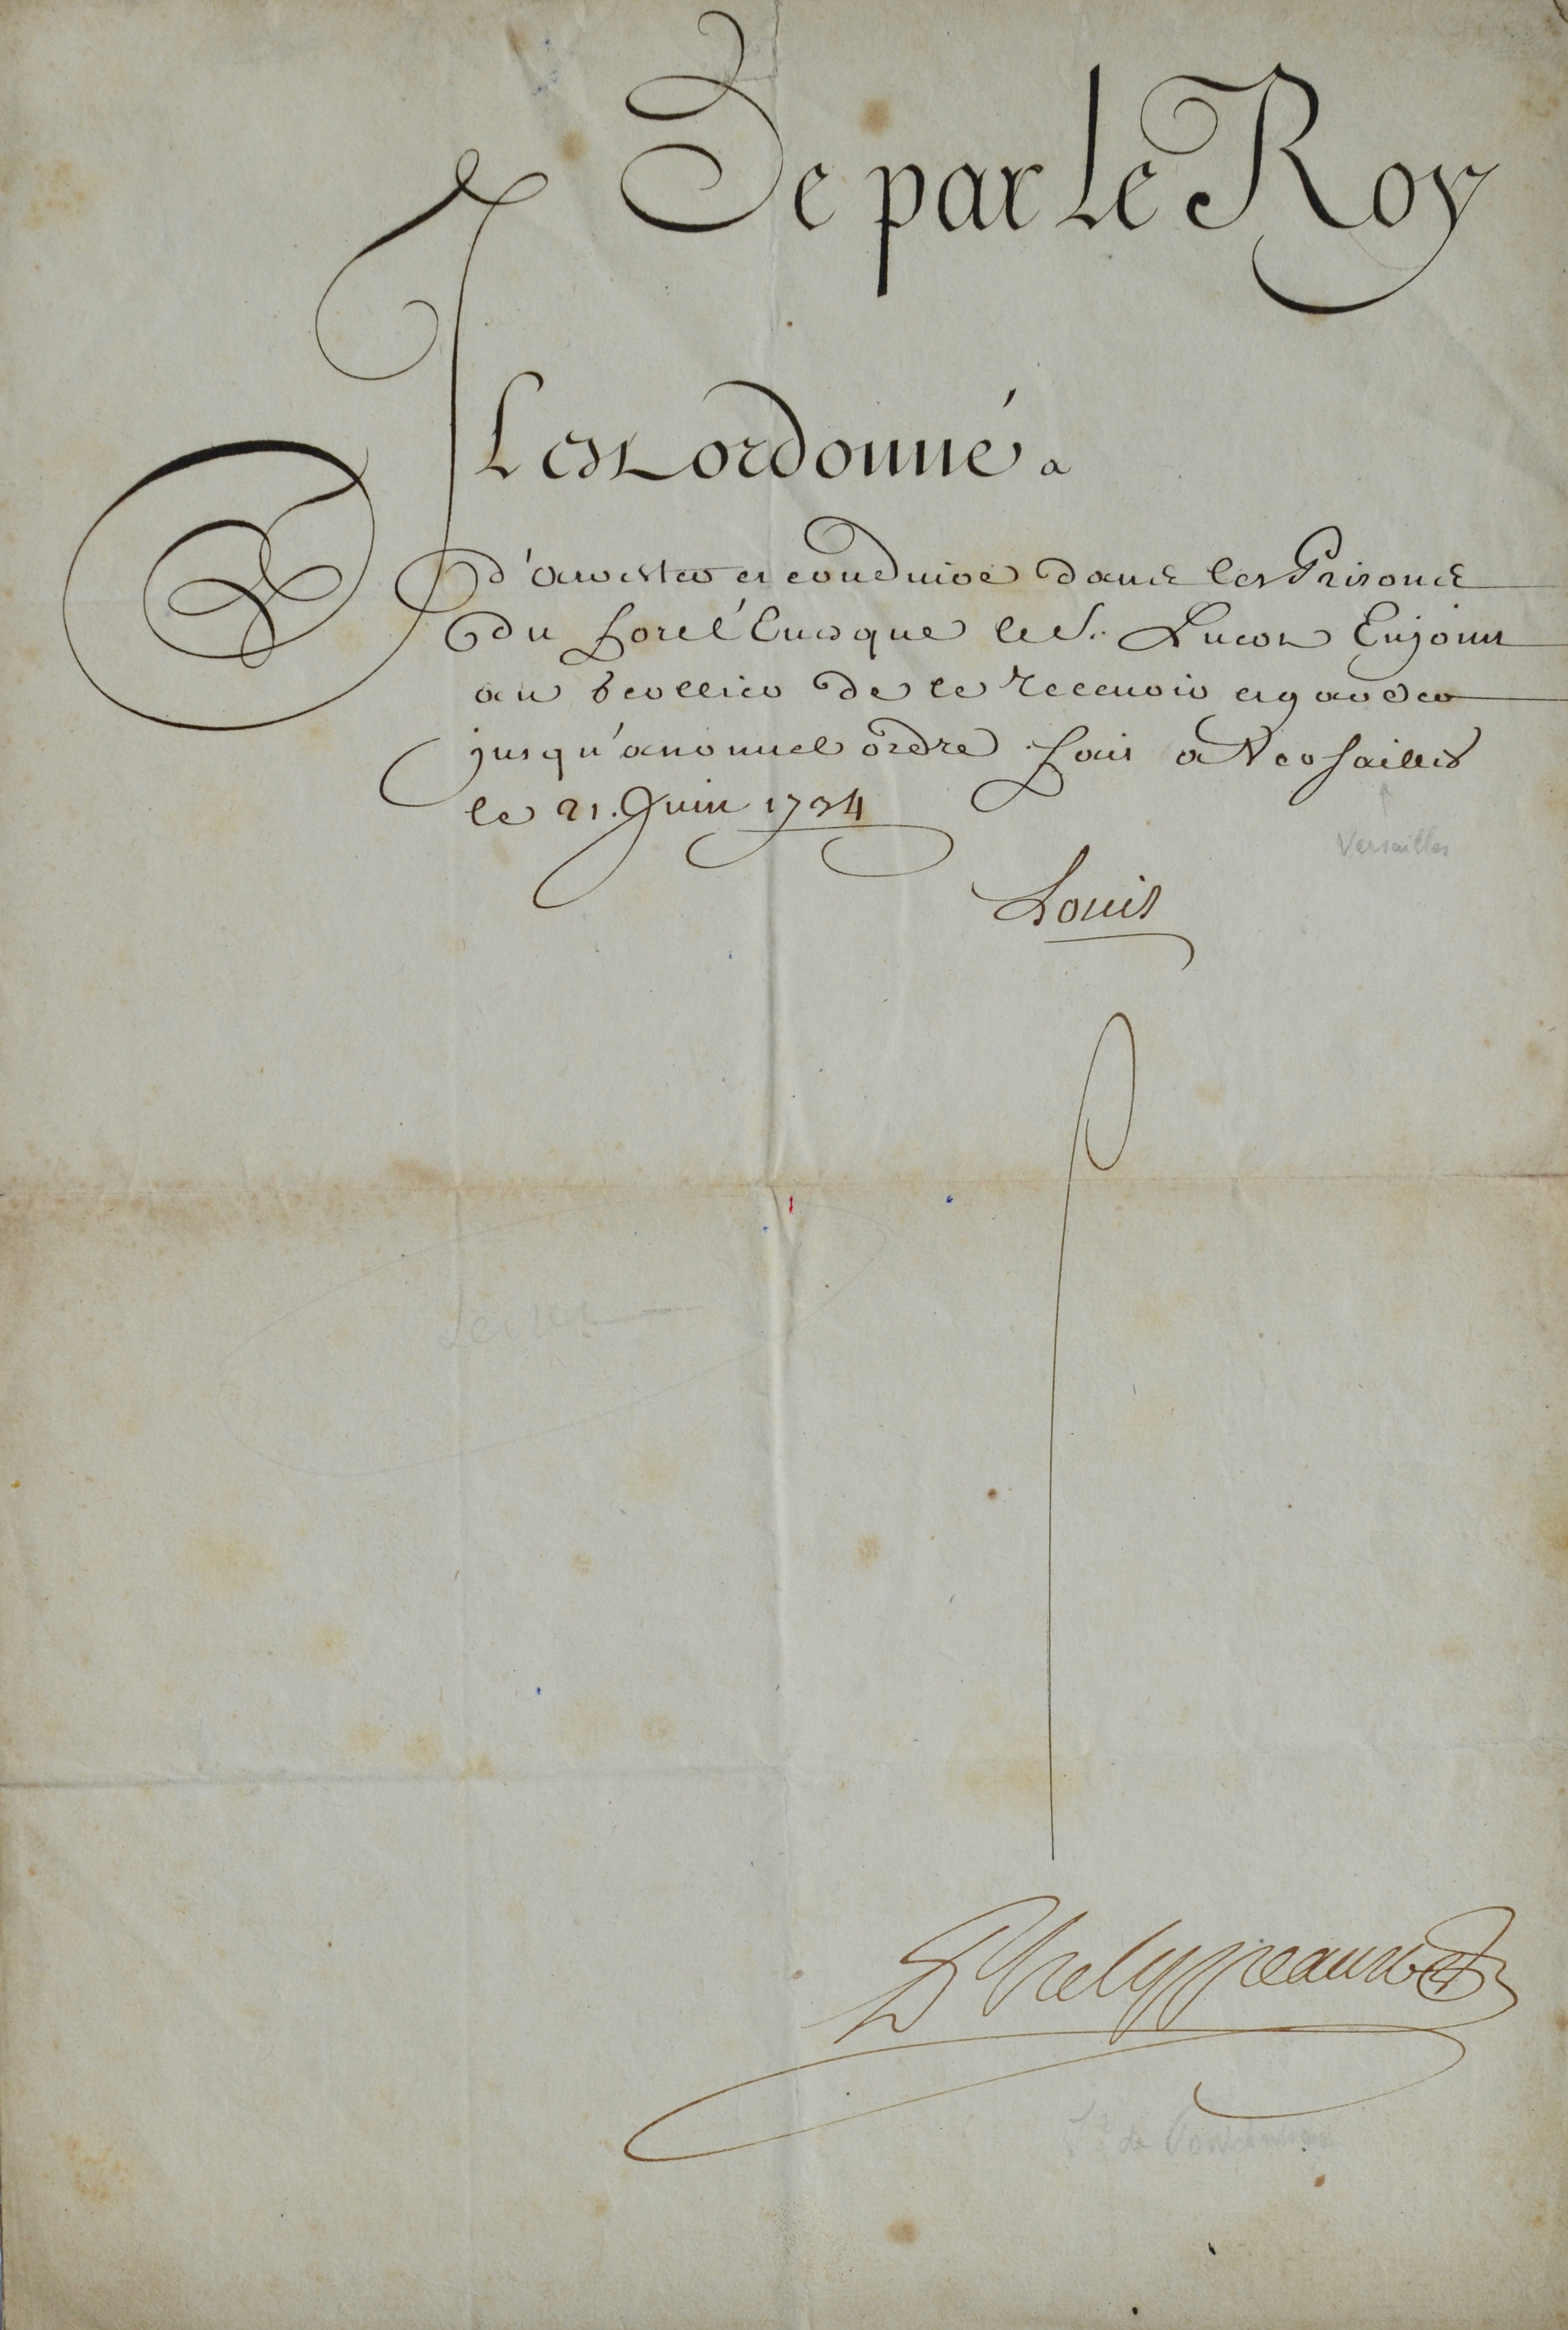 De par Le Roy
IL est ordonné a
d'arrester et conduire dans les Prisons
du fore l'Evesque le S.r Lucot Enjoint
au Geollier de le recevoir et garder
jusqu'a nouvel ordre fait a Versailles
le 21. Juin 1734
Versailles
Louis
Phelypeaux
de